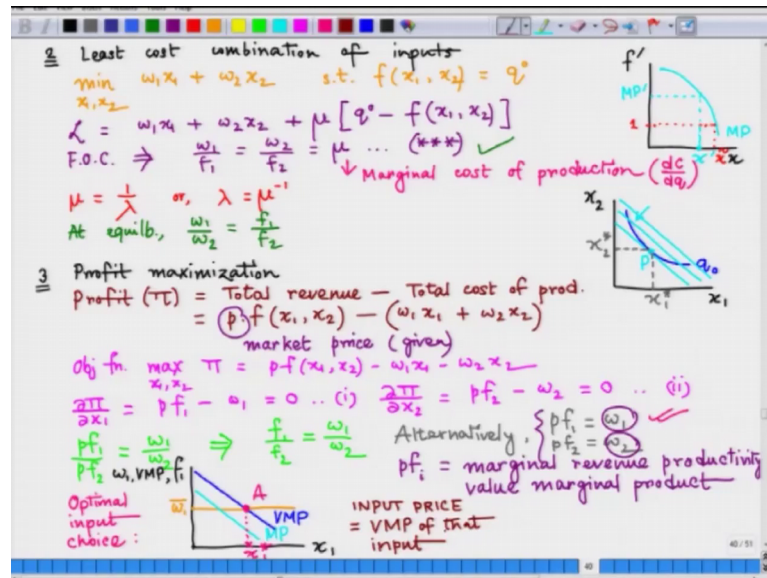 2 Least cost combination of inputs
min ω₁x₁ + ω₂x₂ s.t. f(x₁, x₂) = q°
x₁, x₂
L = ω₁x₁ + ω₂x₂ + μ [q° - f(x₁, x₂)]
F.O.C. ⇒ ω₁/f₁ = ω₂/f₂ = μ ... (***) ✓
↓ Marginal cost of production (dc/dq)
μ = 1/λ or, λ = μ⁻¹
At equilb., ω₁/ω₂ = f₁/f₂
f'
MP'
1
MP
x' x* x
x₂
x₂*
P
q₀
x₁* x₁
3 Profit maximization
Profit (π) = Total revenue - Total cost of prod.
= p.f(x₁, x₂) - (ω₁x₁ + ω₂x₂)
market price (given)
Obj fn. max π = pf(x₁, x₂) - ω₁x₁ - ω₂x₂
x₁, x₂
∂π/∂x₁ = pf₁ - ω₁ = 0 .. (i) ∂π/∂x₂ = pf₂ - ω₂ = 0 .. (ii)
pf₁/pf₂ = ω₁/ω₂ ⇒ f₁/f₂ = ω₁/ω₂
Alternatively, { pf₁ = ω₁
pf₂ = ω₂
pfᵢ = marginal revenue productivity
value marginal product
ω₁, VMP, f₁
Optimal
input
choice :
ω̄₁
A
VMP
MP
x₁* x₁
INPUT PRICE
= VMP of that
input
40/51
40